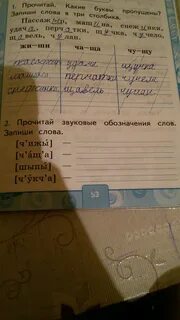 1. Прочитай. Какие буквы пропущены?
Запиши слова в три столбика.
Пассажир, машина, снежинки,
удача, перчатки, щучка, чучело,
щавель, чулан.
жи–ши ча–ща чу–щу
пассажир удача щучка
машина перчатки чучело
снежинка щавель чулан
2. Прочитай звуковые обозначения слов.
Запиши слова.
[ч'ижы]
[ч'ащ'а]
[шыпы]
[ч'укч'а]
53